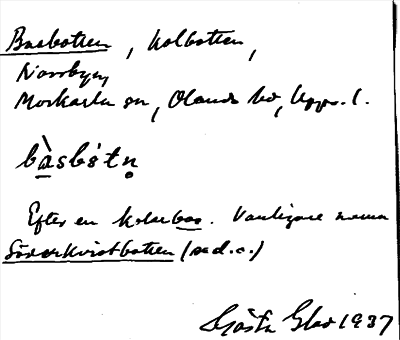 Basbotten, Kolbotten,
Norrbyn,
Morkarla sn, Olands hd, Upps. l.
bàsbótn̥
Efter en kolarbas. Vanligare namn
Söderkvistbotten (se d.o.)
Gösta Glad 1937